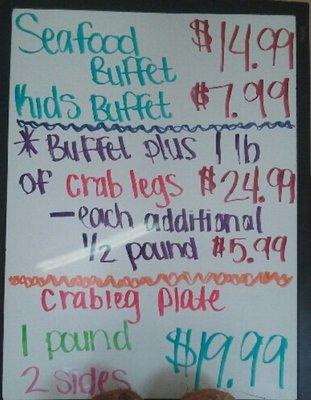 Seafood $14.99
Buffet
Kids Buffet $7.99
* Buffet plus 1 lb
of crab legs $24.99
- each additional
1/2 pound $5.99
Crableg Plate
1 pound $19.99
2 sides